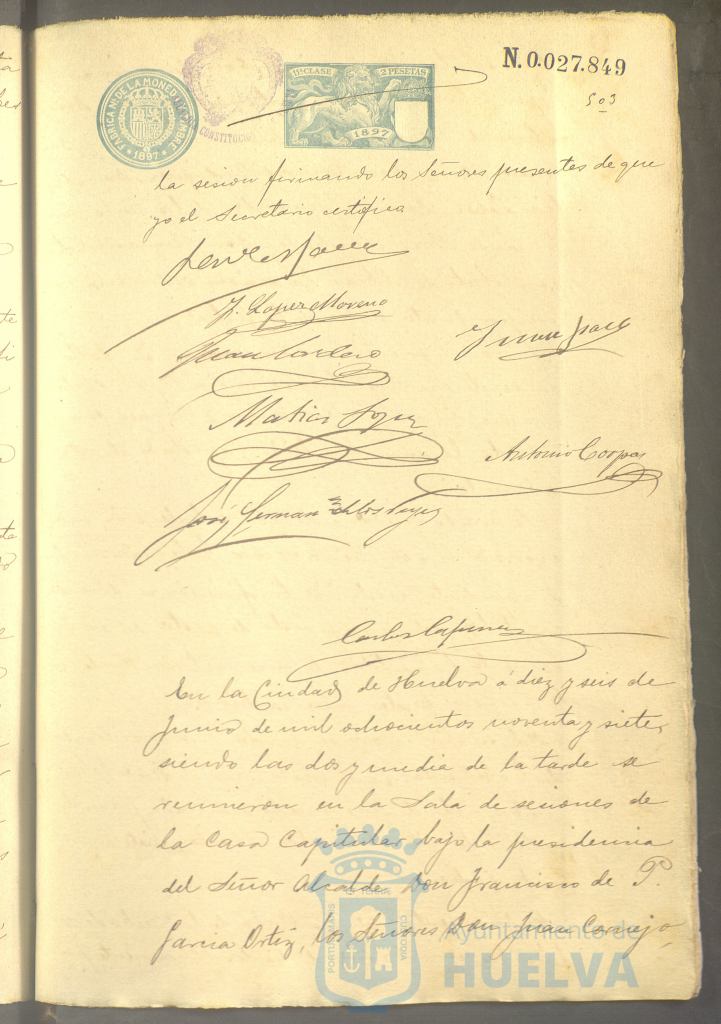 N.0.027.849
503
11ª CLASE 2 PESETAS
1897
FABRICA NL. DE LA MONEDA Y TIMBRE
1897
CONSTITUCIO
la sesion firmando los Señores presentes de que
yo el Secretario certifica
J. Lopez Moreno
Juan Cordero
Matias Lopez
Antonio Corpas
José Hernanz de los Reyes
Carlos
En la Ciudad de Huelva á diez y seis de
Junio de mil ochocientos noventa y siete,
siendo las dos y media de la tarde se
reunieron en la Sala de sesiones de
la Casa Capitular bajo la presidencia
del Señor Alcalde Don Francisco de P.
Garcia Ortiz, los Señores Don Juan Cornejo,
Ayuntamiento de
HUELVA